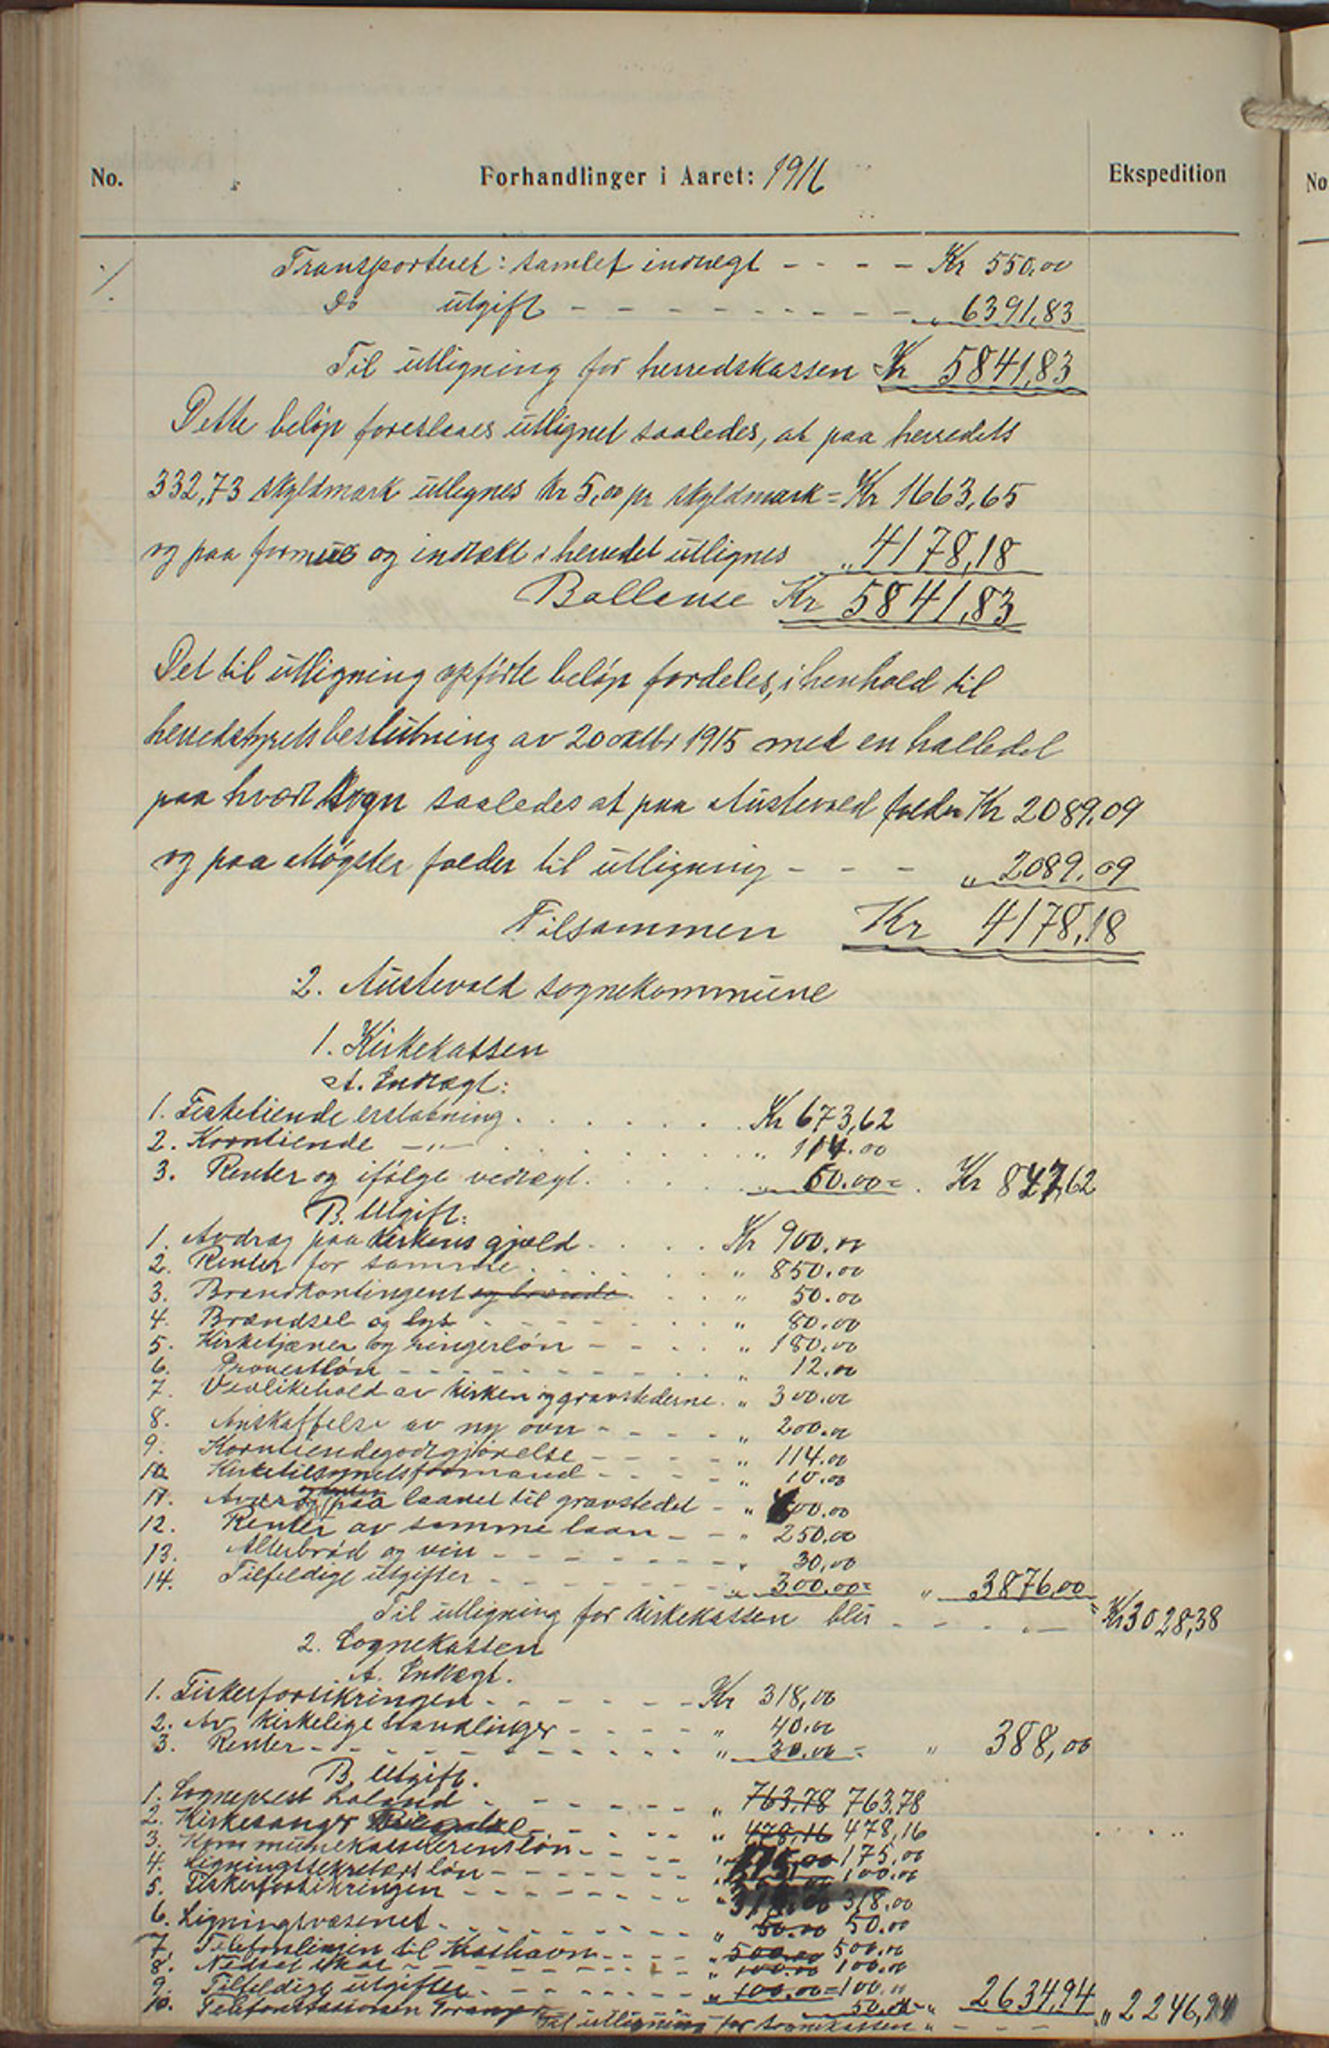 No. Forhandlinger i Aaret: 1916 Ekspedition
No
Transporteret: samlet indtægt - - - - Kr 550,00
Do utgift - - - - - - - - - - „ 6391,83
Til utligning for herredskassen Kr 5841,83
Dette beløp foreslaaes utlignet saaledes, at paa herredets
332,73 skyldmark utlignes kr 5,00 pr skyldmark = Kr 1663,65
og paa formue og indtækt i herredet utlignes „ 4178,18
Ballense Kr 5841,83
Det til utligning opførte beløp fordeles, i henhold til
herredstyrets beslutning av 20 oktbr 1915 med en halledel
paa hvert sogn saaledes at paa Austevold falder Kr 2089,09
og paa Møgster falder til utligning - - - „ 2089,09
Tilsammen Kr 4178,18
2. Austevold sognekommune
1. Kirkekassen
A. Indtægt:
1. Fisketiende erstatning . . . . . . . Kr 673,62
2. Korntiende -„- . . . . . . . „ 114.00
3. Renter og ifølge vedtægt . . . . . „ 60.00 = . Kr 847,62
B. Utgift:
1. Avdrag paa kirkens gjæld . . . . Kr 900.00
2. Renter for samme . . . . . . „ 850.00
3. Brandkontingent og brænde . . . „ 50.00
4. Brændsel og lys - - - - - - „ 80.00
5. Kirketjæner og ringerløn - - - - „ 180.00
6. Provestløn - - - - - - - - - „ 12.00
7. Vedlikehold av kirken og gravstederne . „ 300.00
8. Anskaffelse av ny ovn - - - - - „ 200.00
9. Korntiendegodtgjørelse - - - - - „ 114.00
10. Kirketilsynetsformand - - - - - „ 10.00
11. Avdrag paa laanet til gravstedet - „ 600.00
12. Renter av samme laan - - - „ 250,00
13. Alterbrød og vin - - - - - - - „ 30,00
14. Tilfeldige utgifter - - - - - - „ 300,00 = „ 3876,00
Til utligning for kirkekassen blir - - - „ - = Kr 3028,38
2. Sognekassen
A. Indtægt.
1. Fiskerforsikringen - - - - - - Kr 318,00
2. Av kirkelige handlinger - - - - - „ 40.00
3. Renter - - - - - - - - - - „ 30.00 = „ 388,00
B. Utgift.
1. Sogneprest Loland - - - - - - „ 763,78 763,78
2. Kirkesanger - - - - - - „ 478,16 478,16
3. Kommunekassererens løn - - - - „ 175,00 175,00
4. Ligningssekretærs løn - - - - - „ 100.00
5. Fiskerforsikringen - - - - - - - „ 318.00 318.00
6. Ligningsvæsenet - - - - - - - „ 50.00 50.00
7. Telefonlinjen til - - - - „ 500,00 500,00
8. - - - - - - - - „ 100.00 100.00
9. Tilfeldige utgifter - - - - - - „ 100.00 = 100.00
10. Telefonstationen 50,00 - „ 2634,94 „ 2246,94
Til utligning for sognekassen „ - - -